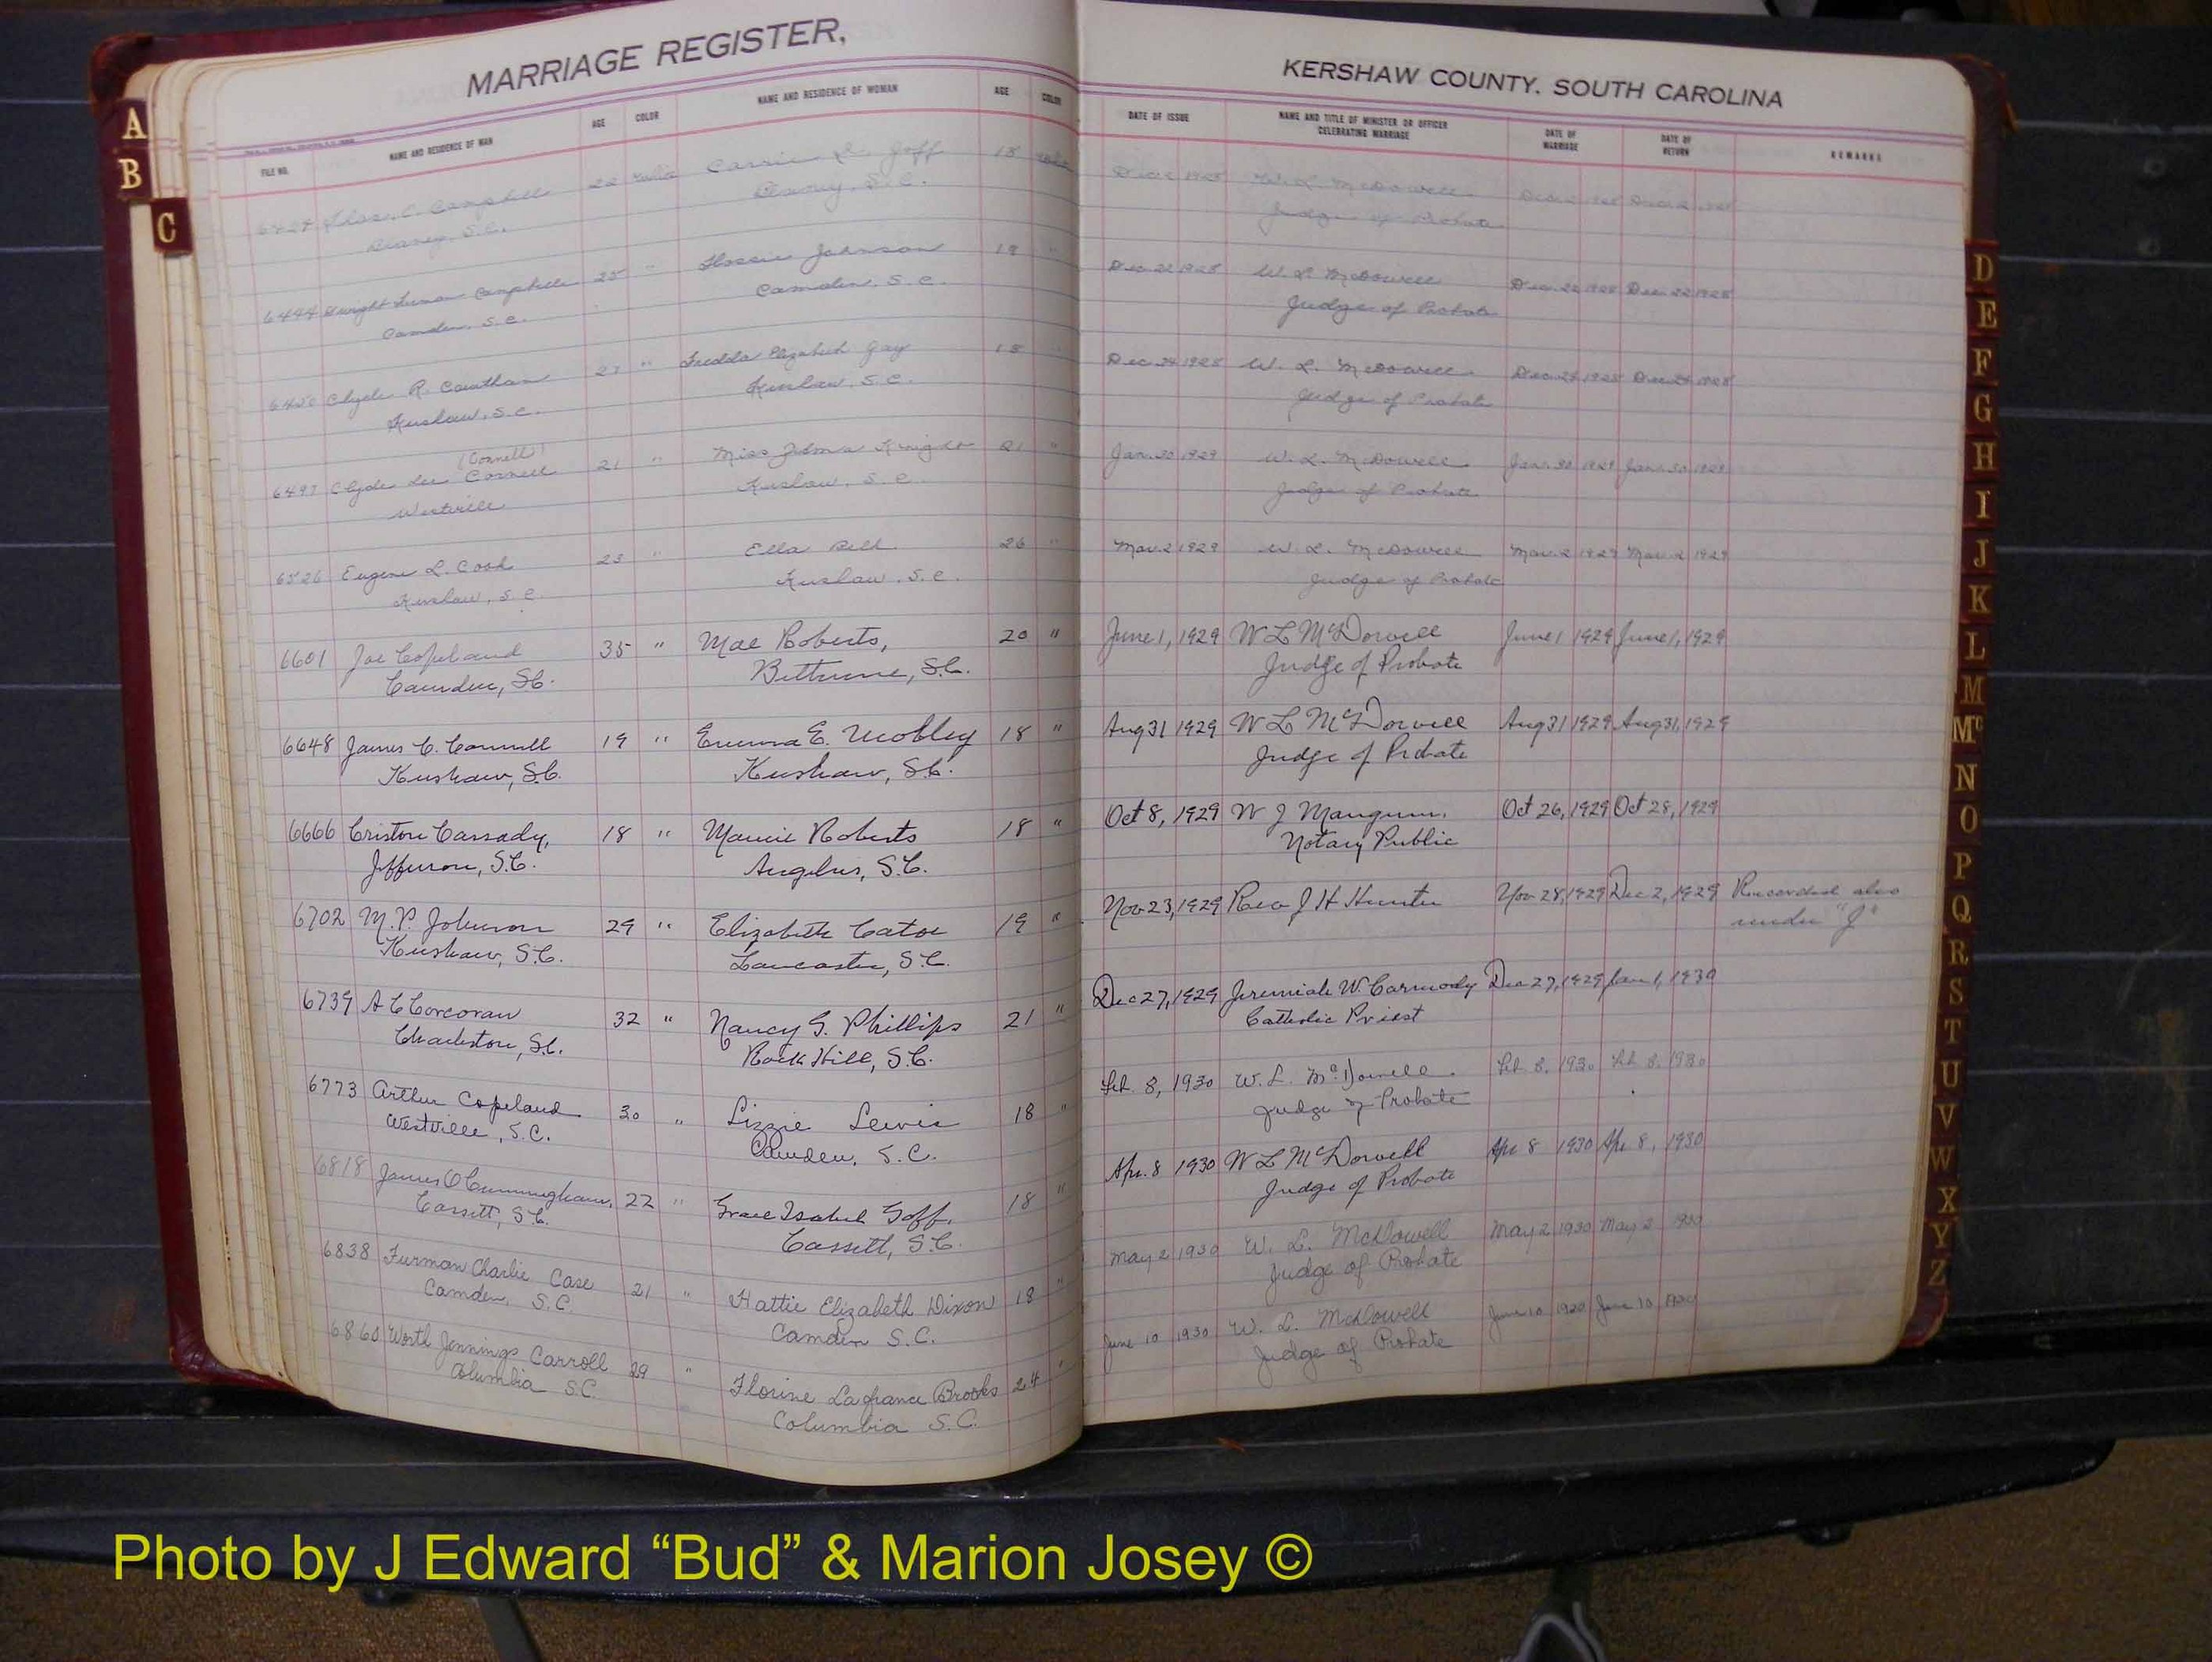 MARRIAGE REGISTER,
KERSHAW COUNTY. SOUTH CAROLINA
FILE NO. NAME AND RESIDENCE OF MAN AGE COLOR NAME AND RESIDENCE OF WOMAN AGE COLOR DATE OF ISSUE NAME AND TITLE OF MINISTER OR OFFICER CELEBRATING MARRIAGE DATE OF MARRIAGE DATE OF RETURN REMARKS
Campbell 22 White Carrie Goff 18 1928 W. L. McDowell
S.C. S.C. Judge of Probate
Dwight Campbell 25 " Johnson 19 " Dec. 22 1928 W. L. McDowell Dec. 22 1928 Dec. 22 1928
Camden, S.C. Camden, S.C. Judge of Probate
Clyde R. 27 " Elizabeth Gay 18 Dec. 24 1928 W. L. McDowell Dec. 24 1928 Dec. 24 1928
Kershaw, S.C. Kershaw, S.C. Judge of Probate
(Cornell)
6497 Clyde Lee 21 " Miss Knight 21 " Jan. 30 1929 W. L. McDowell Jan. 30 1929 Jan. 30 1929
Westville Kershaw, S.C. Judge of Probate
6526 Eugene L. Cook 23 " Ella Bell 26 " Mar. 2 1929 W. L. McDowell Mar. 2 1929 Mar. 2 1929
Kershaw, S.C. Kershaw, S.C. Judge of Probate
6601 Joe Copeland 35 " Mae Roberts, 20 " June 1, 1929 W L McDowell June 1 1929 June 1, 1929
Camden, S.C. Bethune, S.C. Judge of Probate
6648 James C. 19 " Emma E. Mobley 18 " Aug 31 1929 W L McDowell Aug 31 1929 Aug 31, 1929
Kershaw, S.C. Kershaw, S.C. Judge of Probate
6666 Cassady, 18 " Mamie Roberts 18 " Oct 8, 1929 W J Mangum, Oct 26, 1929 Oct 28, 1929
Jefferson, S.C. Angelus, S.C. Notary Public
6702 M. P. Johnson 29 " Elizabeth Catoe 19 " Nov 23, 1929 Rev J H Hunter Nov 28, 1929 Dec 2, 1929 Recorded also
Kershaw, S.C. Lancaster, S.C. under "J"
6739 A C Corcoran 32 " Nancy G. Phillips 21 " Dec 27, 1929 Jeremiah W. Carmody Dec 27, 1929 Jan 1, 1930
Charleston, S.C. Rock Hill, S.C. Catholic Priest
6773 Arthur Copeland 30 " Lizzie Lewis 18 " Feb. 8, 1930 W. L. McDowell Feb. 8, 1930 Feb. 8, 1930
Westville, S.C. Camden, S.C. Judge of Probate
6818 James O Cunningham, 22 " Grace Isabel Goff, 18 " Apr. 8 1930 W L McDowell Apr 8 1930 Apr 8, 1930
Cassett, S.C. Cassett, S.C. Judge of Probate
6838 Furman Charlie Case 21 " Hattie Elizabeth Dixon 18 " May 2 1930 W. L. McDowell May 2 1930 May 2 1930
Camden, S.C. Camden S.C. Judge of Probate
6860 Worth Jennings Carroll 29 " Florine Lafrance Brooks 24 " June 10 1930 W. L. McDowell June 10 1930 June 10 1930
Columbia S.C. Columbia S.C. Judge of Probate
A
B
C
D
E
F
G
H
I
J
K
L
M
Mc
N
O
P
Q
R
S
T
U
V
W
X
Y
Z
Photo by J Edward “Bud” & Marion Josey ©